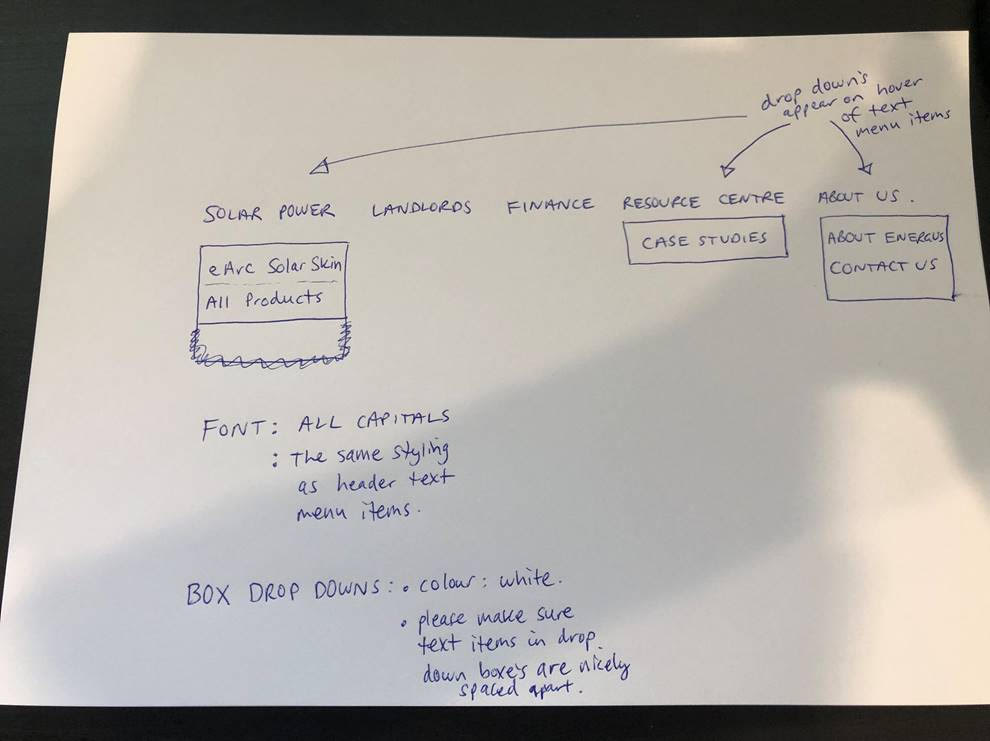 drop down's
appear on hover
of text
menu items
SOLAR POWER LANDLORDS FINANCE RESOURCE CENTRE ABOUT US.
eArc Solar Skin
All Products
CASE STUDIES
ABOUT ENERGUS
CONTACT US
FONT: ALL CAPITALS
: The same styling
as header text
menu items.
BOX DROP DOWNS: • colour: white.
• please make sure
text items in drop
down boxe's are nicely
spaced apart.